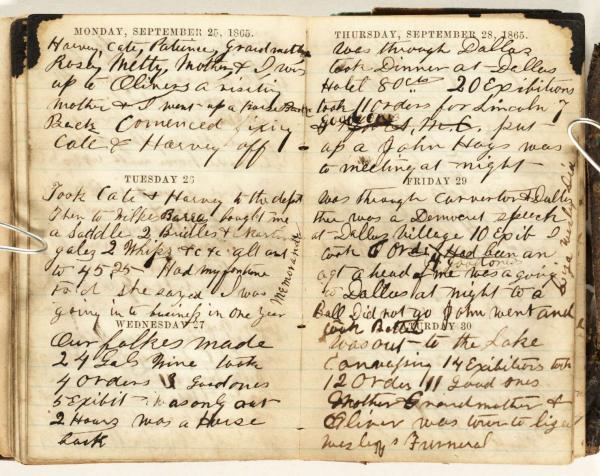 MONDAY, SEPTEMBER 25, 1865.
Harvey, Cate, Patience, Grandmother
Rosey, Metty, Mother & I was
up to Olivers a visiting
Mother & I went up a Horse Back
Back Comenced fixing
Cate & Harvey off
TUESDAY 26
Took Cate & Harvey to the depot
then to bought me
a Saddle 2 Bridles &
gales 2 Whips &c &c all amt
to 45 25 Had my fortune
told she sayed I was
going in to business in one year
Memoranda
WEDNESDAY 27
Our folkes made
24 Gals Wine took
4 Orders 3 Good ones
5 Exibit was only out
2 Hours was a Horse
back
THURSDAY, SEPTEMBER 28, 1865.
Was through Dallas
took Dinner at Dallas
Hotel 80cts 20 Exibitions
took 11 Orders for Lincoln 7
good ones put
up a John Hays was
to meeting at night
FRIDAY 29
Was through & Dallas
there was a Democrat speech
at Dallas Village 10 Exib I
took 6 Ord 4 good ones Had been an
agt a head of me was a going
to Dallas at night to a
Ball Did not go John went and
took Bettie
SATURDAY 30
Was out to the Lake
Canvasing 14 Exibitions took
12 Order 11 Good ones
Mother Grandmother &
Oliver was down to
Funneral